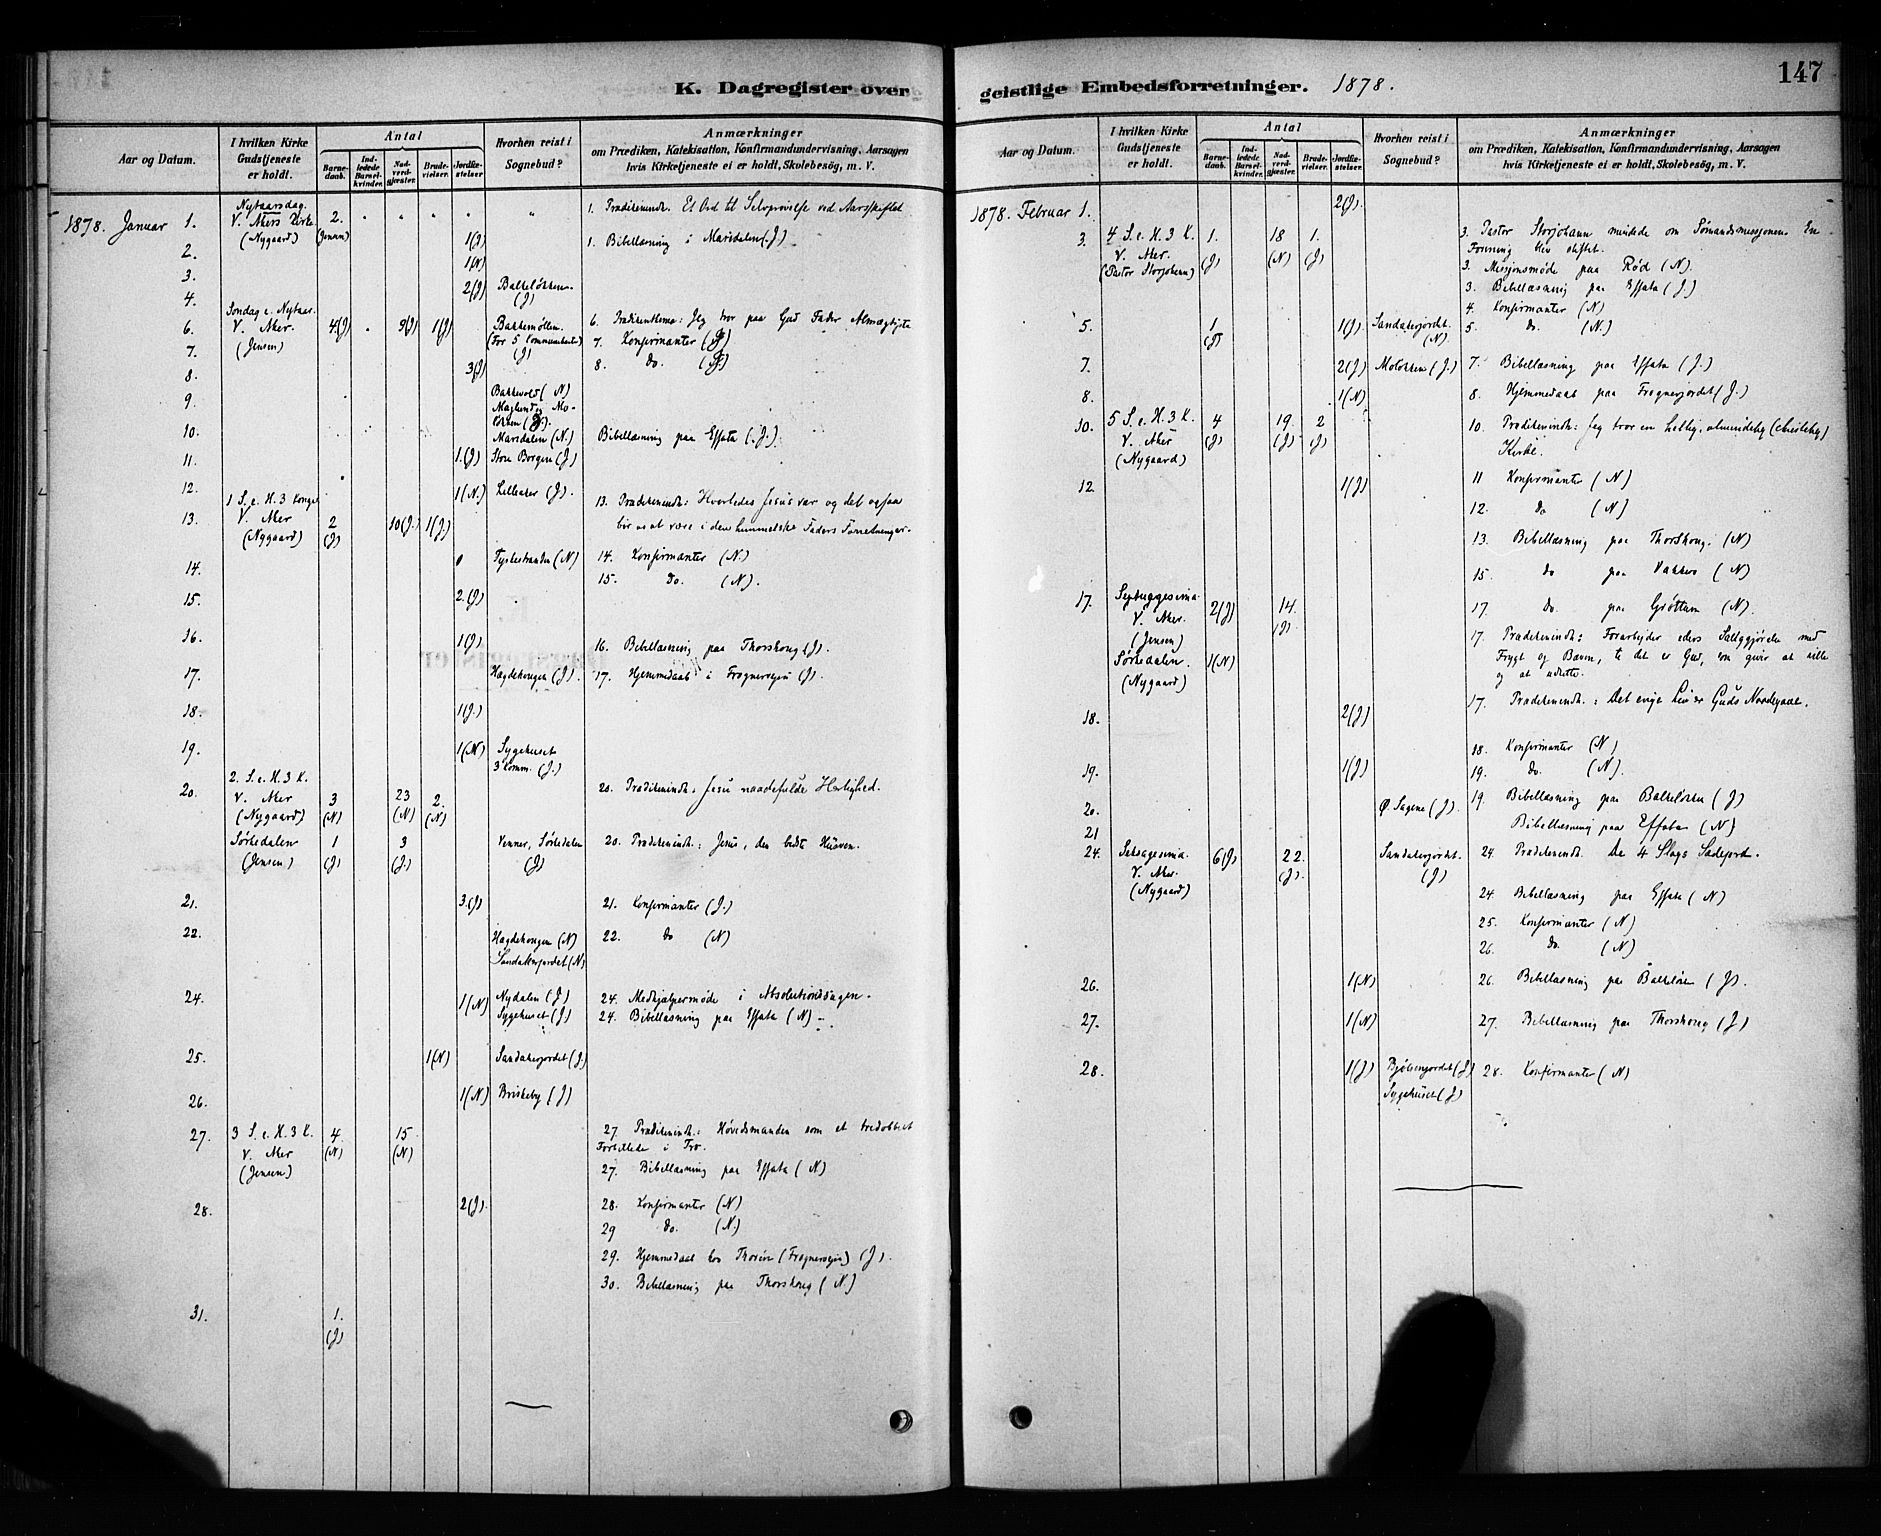 K. Dagregister over
Aar og Datum.
I hvilken Kirke Gudstjeneste er holdt.
Antal
Barne-daab.
Ind-ledede Barsel-kvinder.
Nad-verd-gjæster.
Brude-vielser.
Jordfæ-stelser
Hvorhen reist i Sognebud?
Anmærkninger
om Prædiken, Katekisation, Konfirmandundervisning, Aarsagen
hvis Kirketjeneste ei er holdt, Skolebesög, m. V.
1878. Januar 1. Nytaarsdag. V. Akers Kirke (Nygaard) 2. (Jensen) 1. Prædikenindh. Et Ord til Selvprövelse ved Aarsskiftet
2. 1(J) 1. Bibellæsning i Marsdalen (J)
3. 1(N)
4. 2(J) Balkeløkken. (J)
6. Söndag e. Nytaar. V. Aker. (Jensen) 4(J) 9(J) 1(J) Bakkemøllen. (For 5 Communikanter) (J) 6. Prædikenthema: Jeg tror paa Gud Fader Almægtigste
7. 7. Konfirmanter (J)
8. 3(J) 8. do. (J)
9. Bakkevold (N)
10. Marsdalen (N.) Bibellæsning paa Effata (J.)
11. 1.(J) Store Borgen (J)
12. 1(N.) Lilleaker (J).
13. 1 S. e. H. 3 Konger V. Aker (Nygaard) 2 (J) 10(J.) 1(J.) 13. Prædikenindh: Hvorledes Jesus var og det ogsaa
bör os at være i den himmelske Faders Forretninger.
14. Tyskestranden (N) 14. Konfirmanter (N.)
15. 2.(J) 15. do. (N).
16. 1(J) 16. Bibellæsning paa Thorshoug (J).
17. Hægdehougen (J). 17. Hjemmedaab i Frognerveien (J).
18. 1(J.)
19. 1(N) Sygehuset 3 komm. (J.)
20. 2. S. e. H. 3 K. V. Aker (Nygaard) 3 (N) 23 (N) 2. (N) 20. Prædikenindh: Jesu naadefulde Herlighed.
Sørkedalen (Jensen) 1 (J) 3 (J) Venner, Sørkedalen (J) 20. Prædikenindh: Jesus, den bedste Husven.
21. 3.(J) 21. Konfirmanter (J.)
22. Hægdehougen (N) Sandakerjordet (N) 22. do (N)
24. 1(N) Nydalen (J) Sygehuset (J) 24. Medhjælpermøde i Absolutionssagen.
24. Bibellæsning paa Effata (N)
25. 1(N) Sandakerjordet (J.)
26. 1(N) Briskeby (J)
27. 3 S. e. H. 3 K. V. Aker (Jensen) 4. (N) 15 (N) 27 Prædikenindh: Høvedsmanden som et tredobbelt
Forbillede i Tro.
27. Bibellæsning paa Effata (N)
28. 2(J). 28. Konfirmanter (N)
29 do. (N.)
29. Hjemmedaab hos Thorsen (Frognerveien) (J).
30. Bibellæsning paa Thorshoug (N)
31. 1. (J)
geistlige Embedsforretninger. 1878.
147
Aar og Datum.
I hvilken Kirke Gudstjeneste er holdt.
Antal
Barne-daab.
Ind-ledede Barsel-kvinder.
Nad-verd-gjæster.
Brude-vielser.
Jordfæ-stelser
Hvorhen reist i Sognebud?
Anmærkninger
om Prædiken, Katekisation, Konfirmandundervisning, Aarsagen
hvis Kirketjeneste ei er holdt, Skolebesög, m. V.
1878. Februar 1. 2(J).
3. 4 S. e. H. 3 K. V. Aker. (Pastor Storjohann) 1. (J) 18 (N) 1. (J) 3. Pastor Storjohann mindede om Sömandsmissjonen. En
Forening blev stiftet.
3. Missjonsmøde paa Rød (N).
3. Bibellæsning paa Effata (J)
4. Konfirmanter (N)
5. 1 (J) 1(J) Sandakerjordet. (N) 5. do. (N.)
7. 2(J) Moløkken (J.) 7. Bibellæsning paa Effata (J.)
8. 1(N) 8. Hjemmedaab paa Frognerjordet (J.)
10. 5 S. e. H. 3 K. V. Aker (Nygaard) 4 (J) 19. (J) 2 (J) 10. Prædikenindh: Jeg tror en hellig, almindelig (christelig)
Kirke.
11 Konfirmanter (N)
12. 1(J) 12. do (N)
13. Bibellæsning paa Thorshoug. (N)
15. do paa Vækkerø (N)
17. Septuagesima V. Aker. (Jensen) 2(J) 14. (J) 17. do. paa Grøttum (N).
17. Prædikenindh: Forarbejder eders Saliggjørelse med
Frygt og Bæven, ti det er Gud, som giver at ville
og at udrette.
Sørkedalen. (Nygaard) 1(N) 17. Prædikenindh.: Det evige Liv er Guds Naadegave.
18. 2(J) 18. Konfirmanter (N)
19. 1(J) 19. do (N).
20. Ø. Sagene (J). 19. Bibellæsning paa Balkeløkken (J)
21 Bibellæsning paa Effata (N)
24. Seksagesima. V. Aker. (Nygaard) 6(J) 22. (J). Sandakerjordet. (J) 24. Prædikenindh. De 4 Slags Sædejord.
24. Bibellæsning paa Effata (N)
25. Konfirmanter (N)
26. do. (N)
26. 1(N) 26. Bibellæsning paa Balkeløkken (J).
27. 1(N) 27. Bibellæsning paa Thorshoug (J)
28. 1(J) Bjølsenjordet (J) Sygehuset (J) 28. Konfirmanter (N)